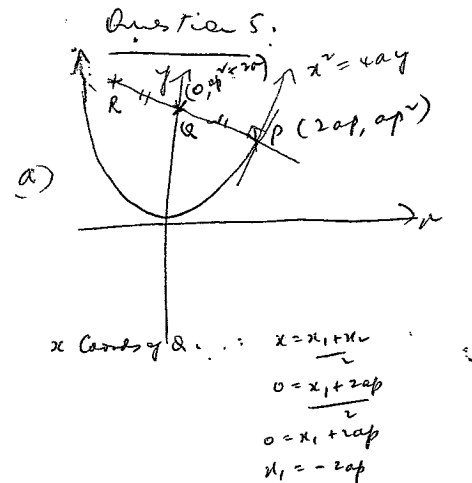 Question 5.
y
(0, ap²+2a)
x² = 4ay
R
Q
P (2ap, ap²)
a)
x
x Coords of Q. . . :
x = x₁ + x₂
2
0 = x₁ + 2ap
2
0 = x₁ + 2ap
x₁ = -2ap